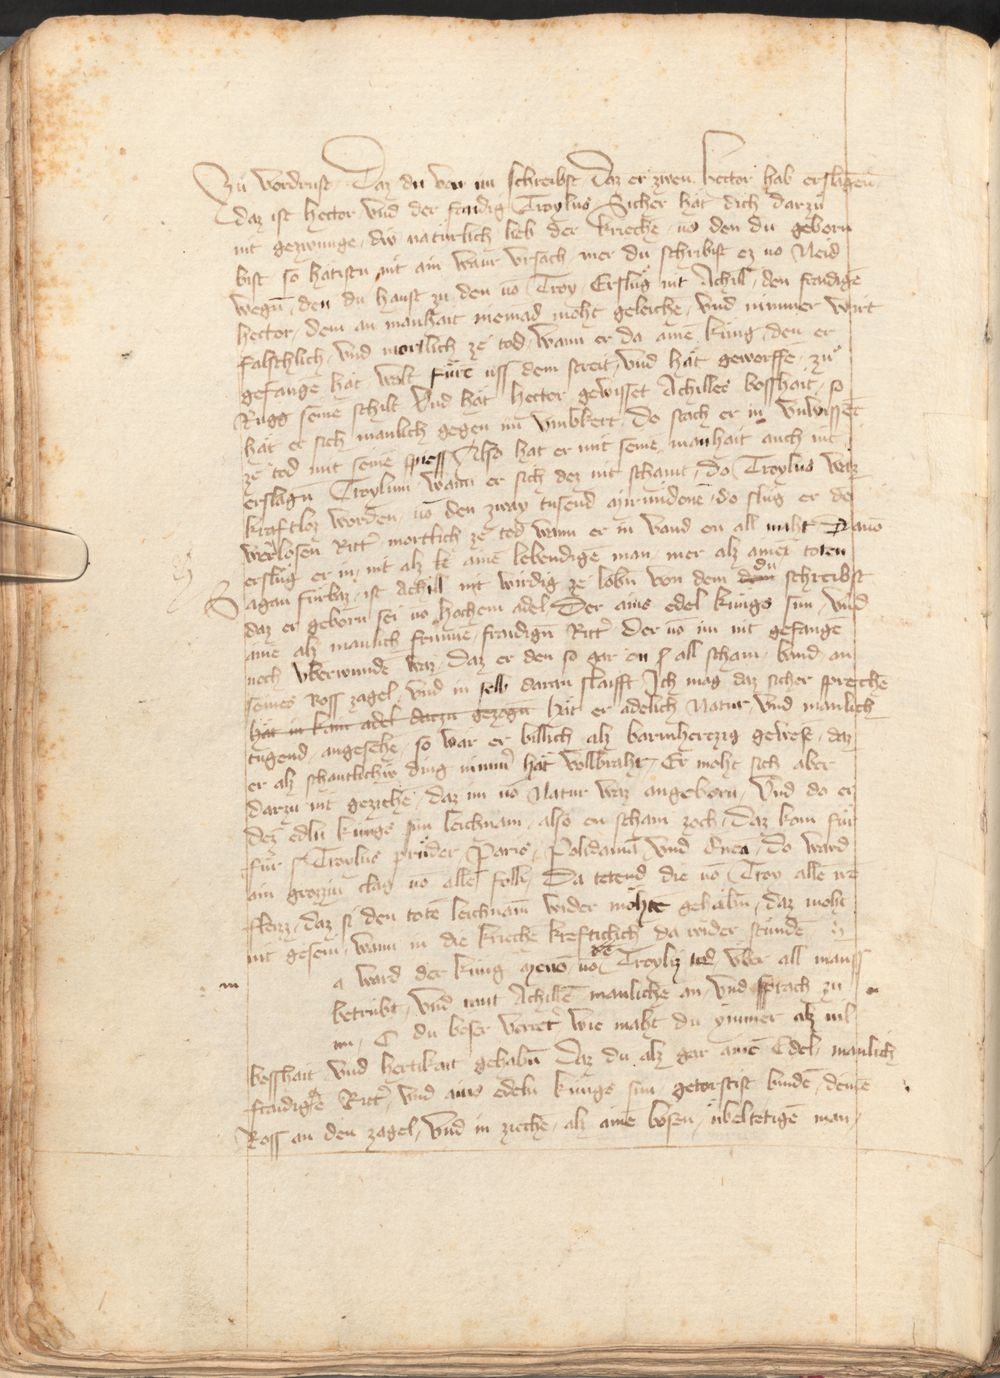 Zu verdrust Daz du von im schreibst Daz er zwen hector hab erslagen
daz ist hector vnd der fraidig Troylus Sicher hat dich darzu
nit gezwunge die naturlich lieb der krieche vō den du geborn
bist so hatistu nit ain waur vrsach mer du schribist ez vō Neid
wegn den du haust zu den vō Troy Erslug nit Achill den fraidige
hector dem an manhait niemād moht geleiche vnd nimmer wirt
falschlich vnd mortlich ze tod wann er da aine kung den er
gefange hat wolt fure uss dem streit vnd hat geworffe zu
Rugg seine schilt Vnd hat hector gewisset Achilles bosshait so
hat er sich manlich gegen im vmbkert do stach er in vnwissēt
ze tod mit seine spiess Also hat er mit seine manhait auch nit
erslagn Troylum wann er sich dez nit schamt do Troylus waz
kraftloz worden vō den zway tusend mirmidone do slug er de
werlosen Ritt mortlich ze tod wann er in vand en all maht Dauō
erslug er in nit alz ke aine lebendige man mer alz ainē toten
Sagan furbaz ist Achill nit wirdig ze lobn von dem du schreibst
daz er geborn sei vō hochem adel Der ains edel kungs sun vnd
aine alz manlich frumme fraidign Ritt Der vō im nit gefange
noch vberwunde waz Daz er den so gar en all scham band an
seines Ross zagel vnd in selb daran slaifft Ich mag daz sicher spreche
hat in kain adel darzu gezogn hat er adelich Natur vnd manlich
tugend angesehe so war er billich alz barmhertzig gewese daz
er alz schantlichiv ding nimm hat vollbraht Er moht sich aber
darzu nit geziche daz im vō Natur waz angeborn Vnd do er
dez edln kungs sun leichnam also en scham zoch daz kom fur
fur Troylus pruder Paris Polidamā vnd Enea do ward
ain grozziu clag vō alle folk Da tetend die vō Troy alle ire
flezz daz si den tote leichnam wider mohte gehabn daz moht
nit gesein wann in die krieche kreftichlich da wider stunde
a ward der kung menō vō Troyliz tod vber all mauss
betrubt vnd rant Achille manliche an vnd sprach zu
im O du boser verret wie maht du ymmer alz vil
bosshait vnd hertikait gehabn Daz du alz gar aine Edel manlich
fraidige Ritt vnd ains edeln kungs sun getorstist binde deine
Ross an den zagel vnd in zieche alz aine bosen ubeltetige man